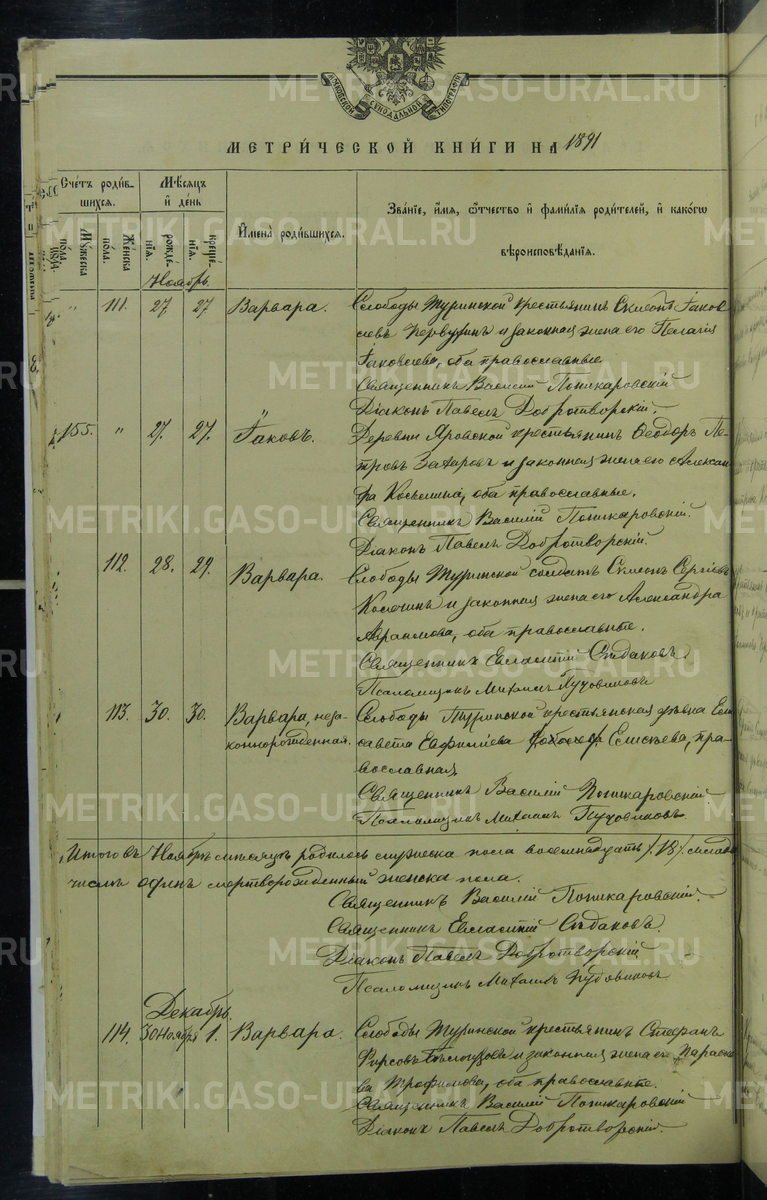 МОСКОВСКОЙ СѴНОДАЛЬНОЙ ТИПОГРАФІИ
METRIKI.GASO-URAL.RU
МЕТРИ́ЧЕСКОЙ КНИ́ГИ НА 1891
Сче́тъ роди́в-шихся.
Мѣ́сяцъ и҆ де́нь
Имена̀ роди́вшихся.
Зва́нїе, и҆́мя, ѻ҆́тчество и҆ фами́лїя роди́телей, и҆ како́гѡ вѣроисповѣ́данїя.
Му́жеска по́ла.
Же́нска по́ла.
рожде́-нїя.
креще́-нїя.
Ноябрь.
„ 111. 27 27 Варвара. Слободы Туринской крестьянинъ Симеонъ Іаков
левъ Первухинъ и законная жена его Пелагія
Іаковлева, оба православные
Священникъ Василій Поникаровскій
Діаконъ Павелъ Добротворскій.
155. „ 27. 27. Іаковъ. Деревни Яровской крестьянинъ Ѳеодоръ Пе-
тровъ Захаровъ и законная жена его Алексан
дра Косьмина, оба православные.
Священникъ Василій Поникаровскій.
Діаконъ Павелъ Добротворскій.
112. 28. 29. Варвара. Слободы Туринской солдатъ Симеонъ Сергіевъ
и законная жена его Александра
оба православные.
Священникъ Евлампій Сѣдаковъ
Псаломщикъ Михаилъ Пудовиковъ
113. 30. 30. Варвара, неза-
коннорожденная.
Слободы Туринской крестьянская дѣвка Ели
савета Евфиміева Елисѣева, пра-
вославная
Священникъ Василій Поникаровскій
Псаломщикъ Михаилъ Пудовиковъ.
Итого въ Ноябрѣ мѣсяцѣ родилось мужеска пола восемнадцать /18/
числѣ одинъ мертворожденный женска пола.
Священникъ Василій Поникаровскій.
Священникъ Евлампій Сѣдаковъ.
Діаконъ Павелъ Добротворскій
Псаломщикъ Михаилъ Пудовиковъ
Декабрь.
114. 30 Ноября 1. Варвара. Слободы Туринской крестьянинъ Стефанъ
Фирсовъ и законная жена его Параске
ва Трофимова, оба православные.
Священникъ Василій Поникаровскій
Діаконъ Павелъ Добротворскій.